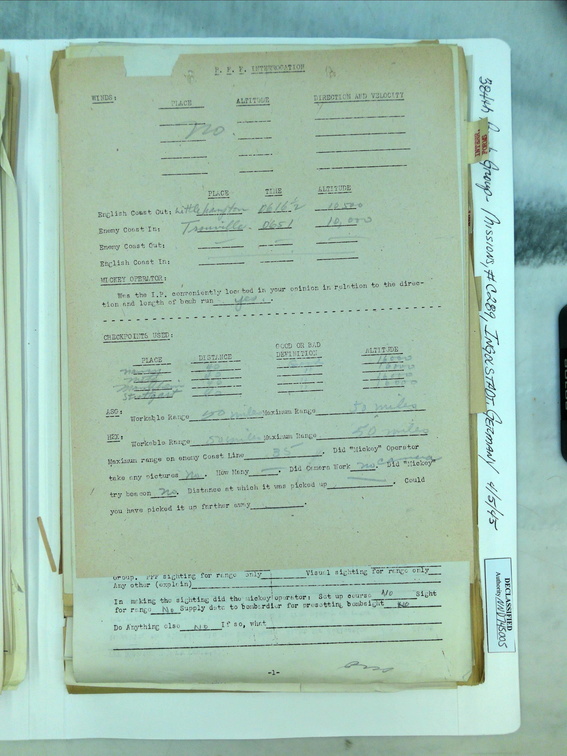 P. F. F. INTERROGATION
WINDS:
PLACE ALTITUDE DIRECTION AND VELOCITY
No
PLACE TIME ALTITUDE
English Coast Out: Littlehampton 0616½ 10500
Enemy Coast In: Trouville 0651 10,000
Enemy Coast Out:
English Coast In:
MICKEY OPERATOR:
Was the I.P. conveniently located in your opinion in relation to the direc-
tion and length of bomb run yes.
CHECKPOINTS USED:
PLACE DISTANCE GOOD OR BAD DEFINITION ALTITUDE
Stuttgart
ASO: Workable Range miles Maximum Range 50 miles
HEX: Workable Range miles Maximum Range 50 miles
Maximum range on enemy Coast Line 35. Did "Mickey" Operator
take any pictures No. How Many. Did Camera Work no camera Did "Mickey"
try beacon No. Distance at which it was picked up. Could
you have picked it up farther away.
Group. PFF sighting for range only Visual sighting for range only
Any other (explain)
In making the sighting did the mickey operator: Set up course Sight
for range No Supply data to bombardier for presetting bombsight
Do Anything else No If so, what
-1-
384th Group - Missions # 289, INGOLSTADT, Germany 4/5/45
DECLASSIFIED
Authority NND 745005